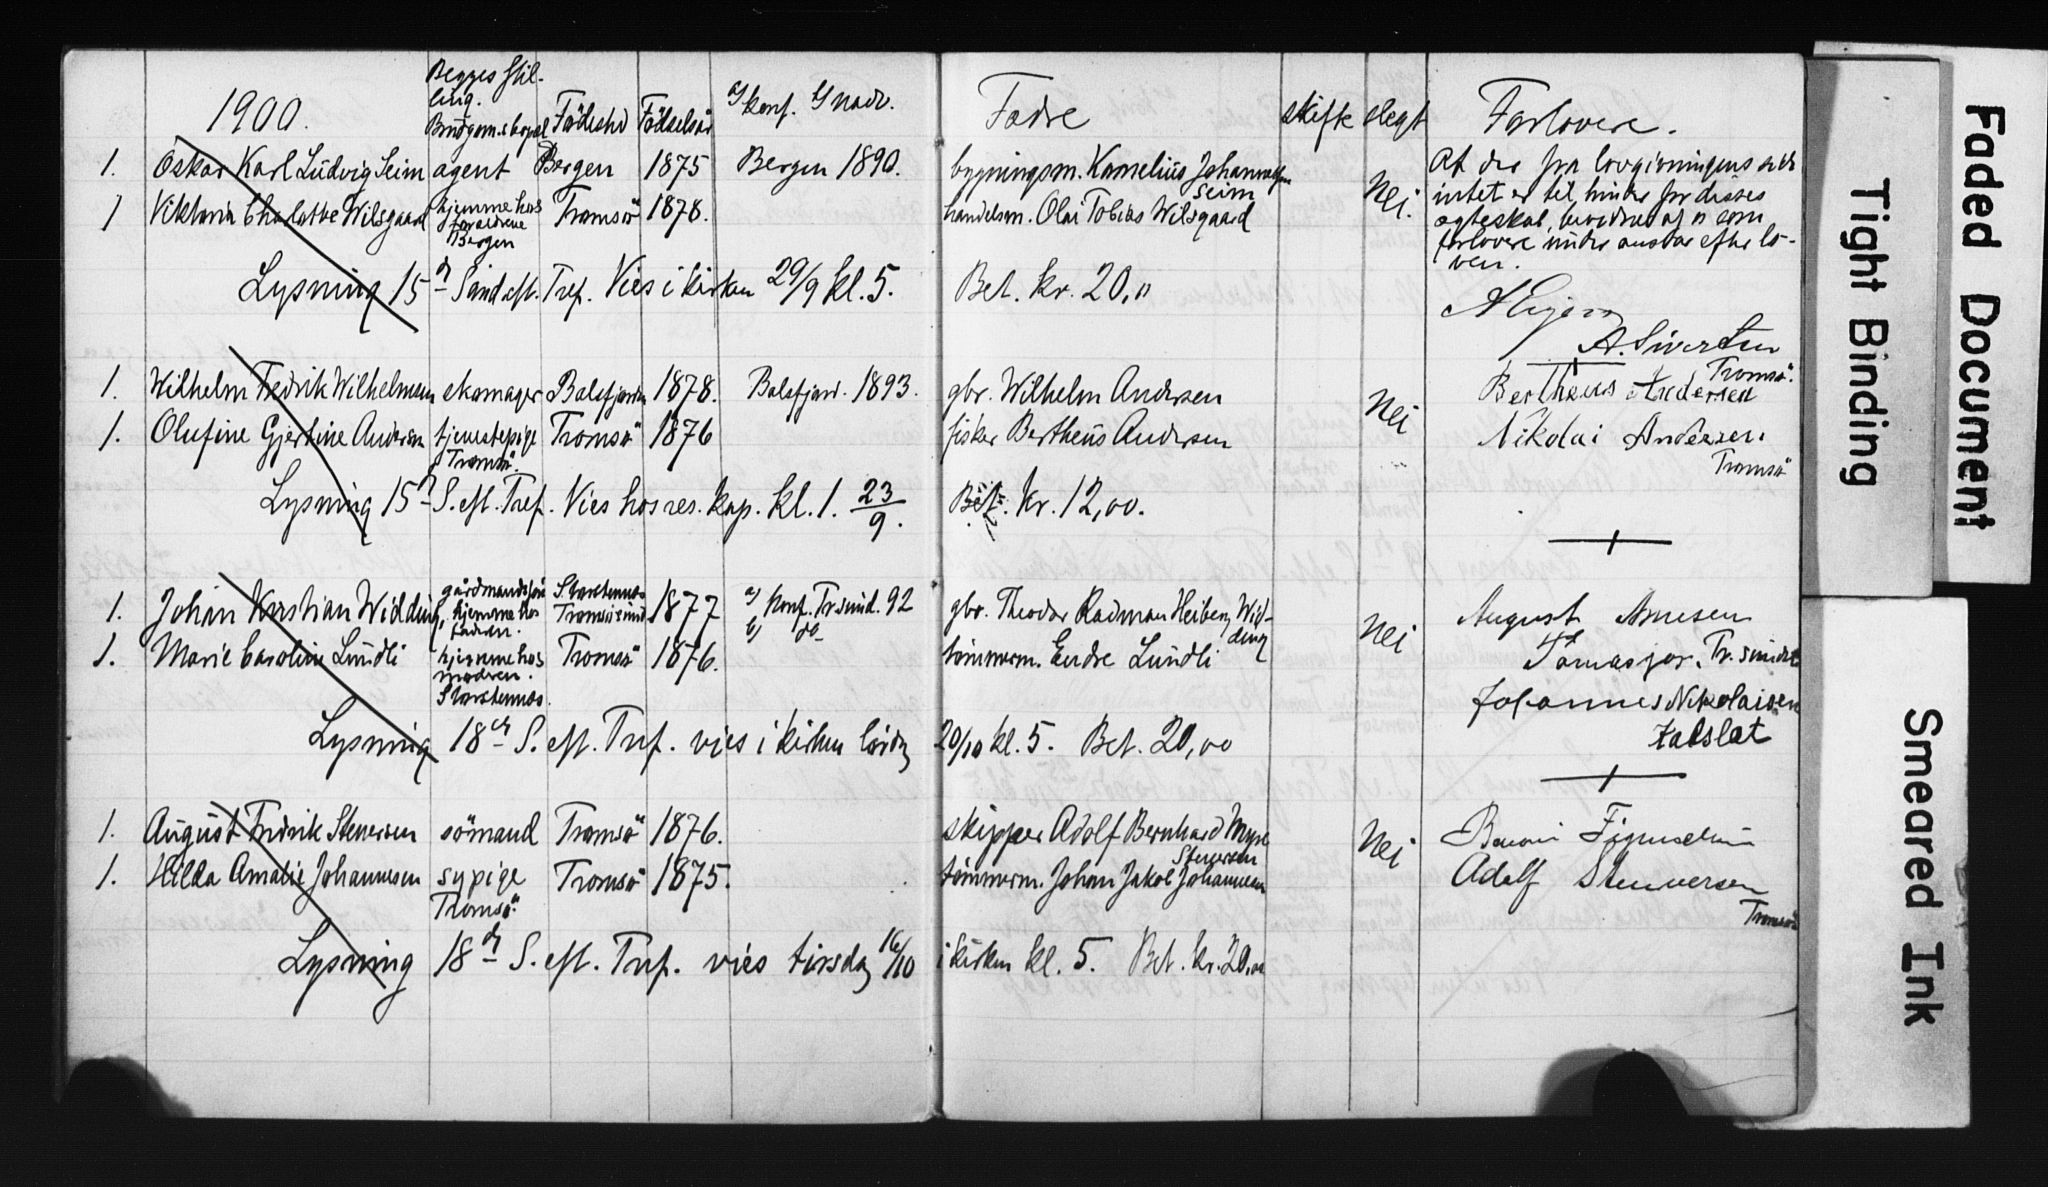 1900.
Begges Stil-
ling.
Brudgom.s bopæl
Födested
Födselsår
a) konf. b) nadv.
Fædre
skifte
slegt
Forlovere.
1. Oskar Karl Ludvig Seim agent Bergen 1875 Bergen 1890. bygningsm. Kornelius Johannesen
Seim
1 Viktoria Charlotte Wilsgaard hjemme hos
forældrene
Bergen
Tromsö 1878. handelsm. Olai Tobias Wilsgaard
Nei.
At der fra lovgivningens side
intet er til hinder for disses
egteskab, bevidnes af os som
forlovere under ansvar efter lo-
ven.
Lysning 15d S. and eft. Tref. Vies i kirken 29/9 kl. 5. Bet. kr. 20,"
A. Sivertsen
Tromsö.
1. Wilhelm Fedrik Wilhelmsen skomager Balsfjorden 1878. Balsfjord. 1893. gbr. Wilhelm Andersen
1. Olufine Gjertine Andersen tjenestepige
Tromsö.
Tromsö 1876 fisker Bertheus Andersen
Nei
Bertheus Andersen
Nikolai Andersen.
Tromsö
Lysning 15d S. eft. Tref. Vies hos res. kap. kl. 1. 23/9. Bet. kr. 12,00.
1. Johan Kristian Widding, gårdmandssön
hjemme hos
faderen.
Storstennes
Tromsösund 1877 a) konf. Tr.sund. 92
b) do
gbr. Theodor Radman Heiberg Wid-
ding
1. Marie Caroline Lundli hjemme hos
moderen.
Storstennes.
Tromsö 1876. tömmerm. Endre Lundli
Nei
August Arnesen
Tomasjor. Tr. sundet
Johannes Nikolaisen
Kalslet
Lysning 18de S. eft. Tref. vies i kirken lördag 20/10 kl. 5. Bet. 20,00
1. August Fredrik Stenersen sömand Tromsö 1876. skipper Adolf Bernhard Myre
Stenersen
1. Hilda Amalie Johannesen sypige
Tromsö.
Tromsö 1875. tömmerm. Johan Jakob Johannesen
Nei
Adolf Stenersen
Tromsö
Lysning 18de S. eft. Tref. vies tirsdag 16/10 i kirken kl. 5. Bet. kr. 20,00
Faded Document
Tight Binding
Smeared Ink